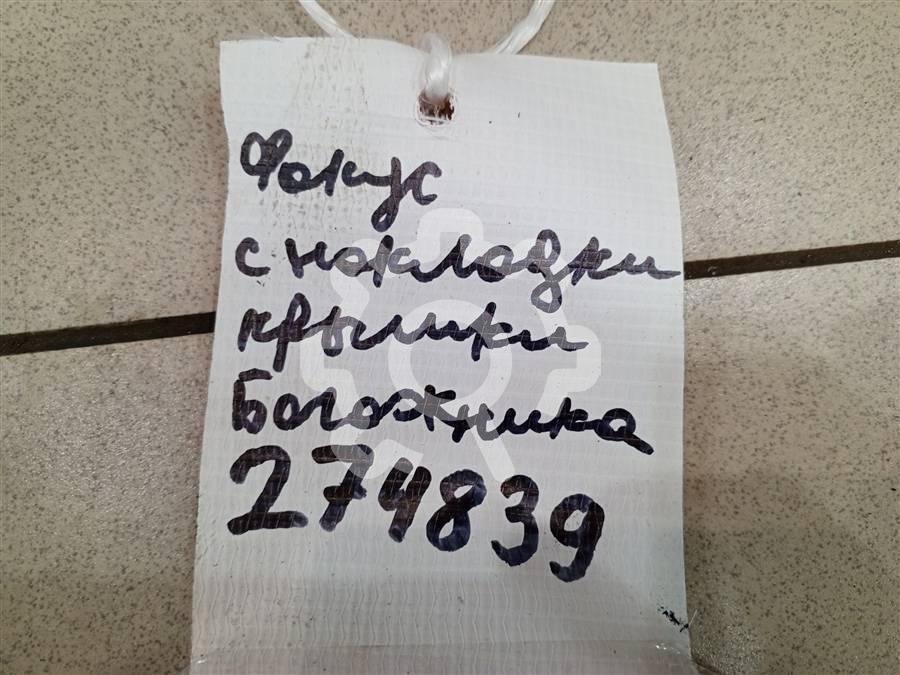 Фокус
с наклодки
крышки
Богожника
274839